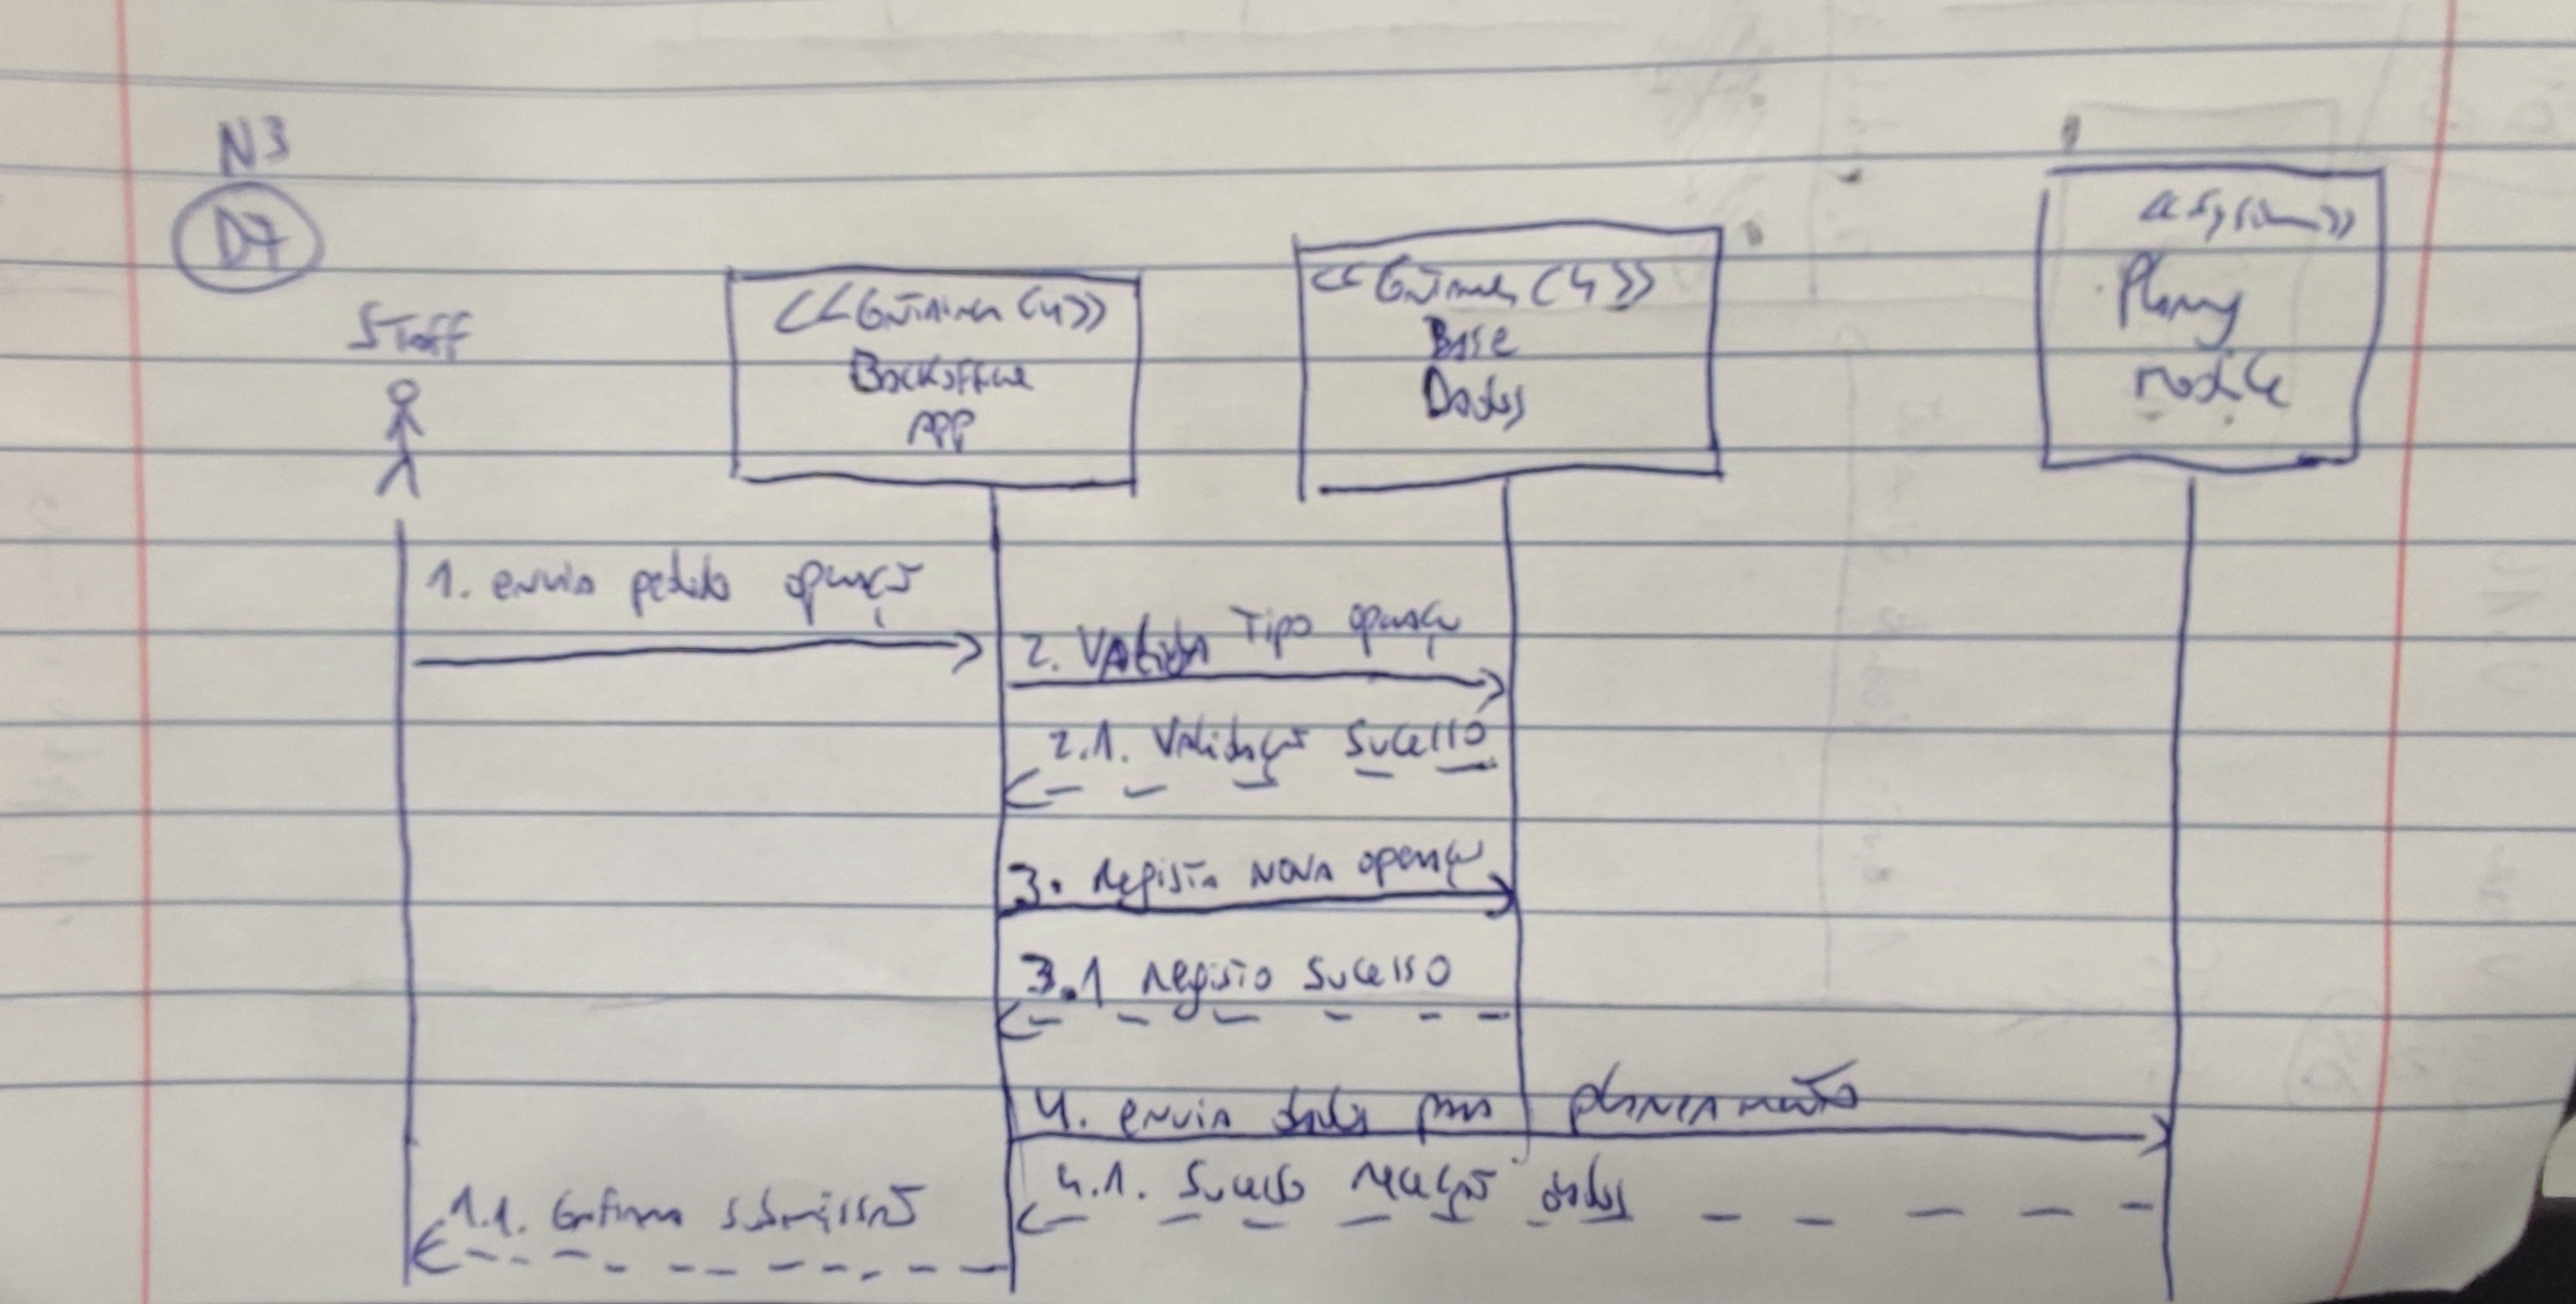 N3
D7
Staff
<<Container C4>>
Backoffice
APP
<<Container C4>>
Base
Dados
<<System>>
Planning
module
1. envia pedido operação
2. Valida Tipo operação
2.1. Validação Sucesso
3. Regista nova operação
3.1 Registo Sucesso
4. envia dados para planeamento
4.1. Sucesso receção dados
1.1. Confirma submissão